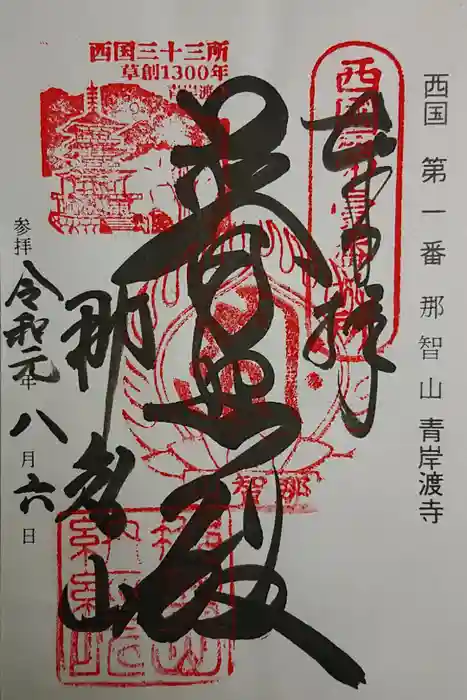 西国 第一番 那智山 青岸渡寺
奉拝
普照殿
那智山
参拝
令和元年八月六日
西国三十三所
草創1300年
青岸渡
那智